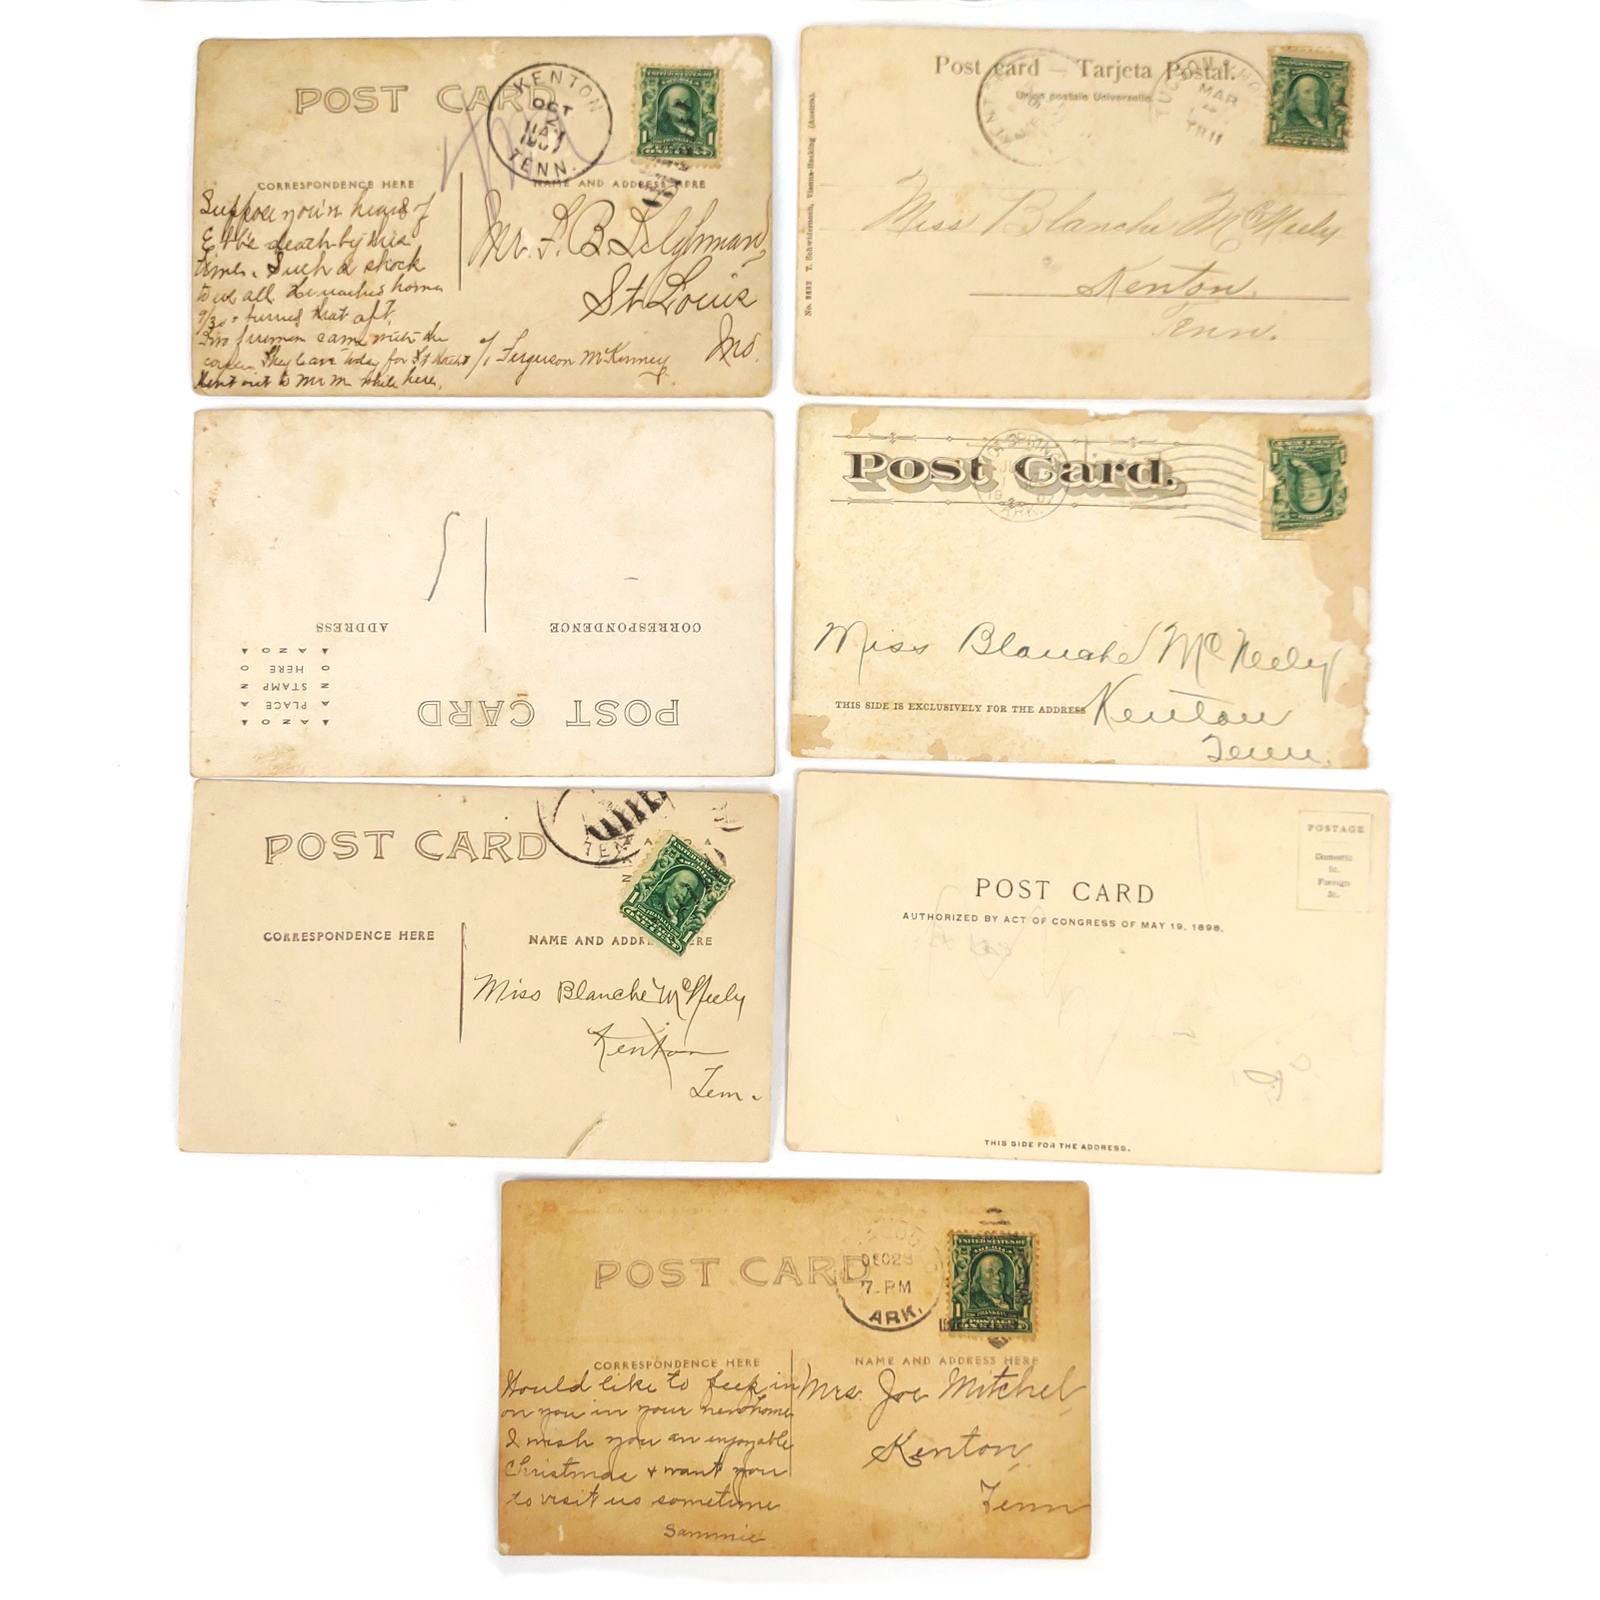 POST CARD
KENTON
OCT
2
TENN.
CORRESPONDENCE HERE
NAME AND ADDRESS HERE
Suppose you've heard of
death by this
time. Such a shock
to us all. He reached home
9/30 - buried that aft.
Two firemen came with the
They leave today for St Louis
Went out to Mr M while here.
Mr. F. B.
St. Louis
Mo.
c/o Ferguson McKinney
Post card — Tarjeta Postal.
Union postale Universelle
MAR
No. 9832 T. Schwidernoch, Vienna-Hacking (Austria).
Miss Blanche McNeely
Kenton
Tenn.
POST CARD
CORRESPONDENCE
ADDRESS
AZO
PLACE
STAMP
HERE
AZO
Post Card.
ARK.
Miss Blanche McNeely
THIS SIDE IS EXCLUSIVELY FOR THE ADDRESS
Kenton
Tenn.
POST CARD
TEN
CORRESPONDENCE HERE
NAME AND ADDRE ERE
Miss Blanche McNeely
Kenton
Tenn.
POSTAGE
Domestic
1c.
Foreign
2c.
POST CARD
AUTHORIZED BY ACT OF CONGRESS OF MAY 19, 1898.
THIS SIDE FOR THE ADDRESS.
POST CARD
DEC 28
7 PM
ARK.
CORRESPONDENCE HERE
NAME AND ADDRESS HERE
Would like to peep in
on you in your new home
I wish you an enjoyable
Christmas & want you
to visit us sometime
Sammie
Mrs. Joe Mitchel
Kenton
Tenn